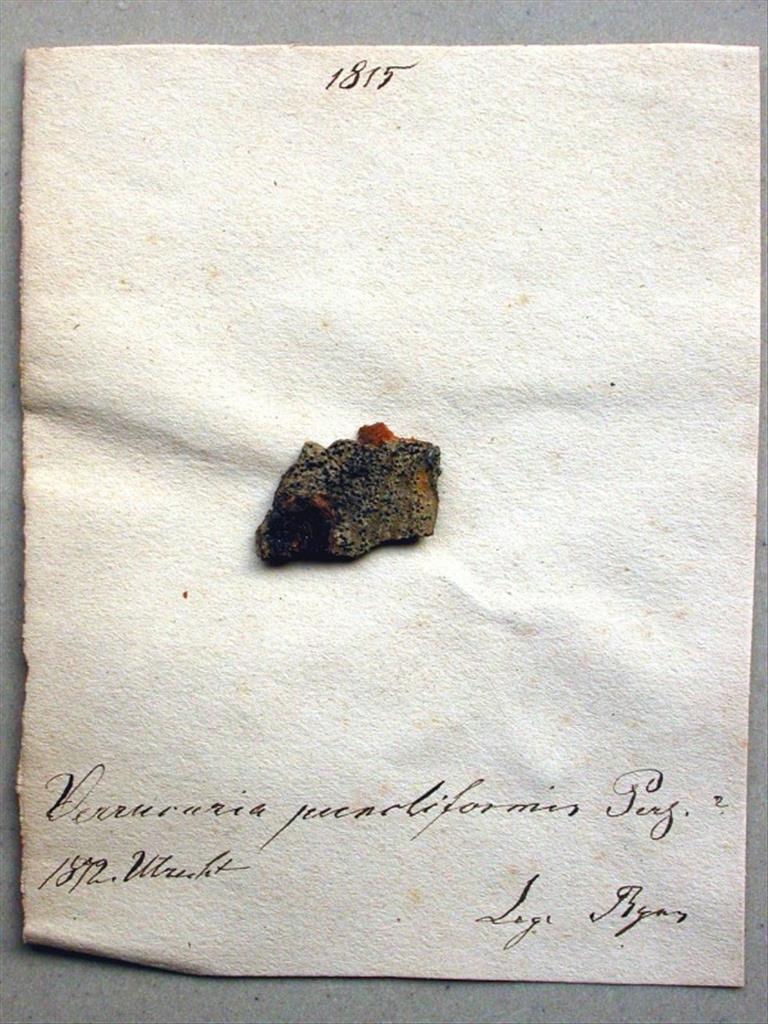 1815
Verrucaria punctiformis Pers. ?
1872. Utrecht
Leg.